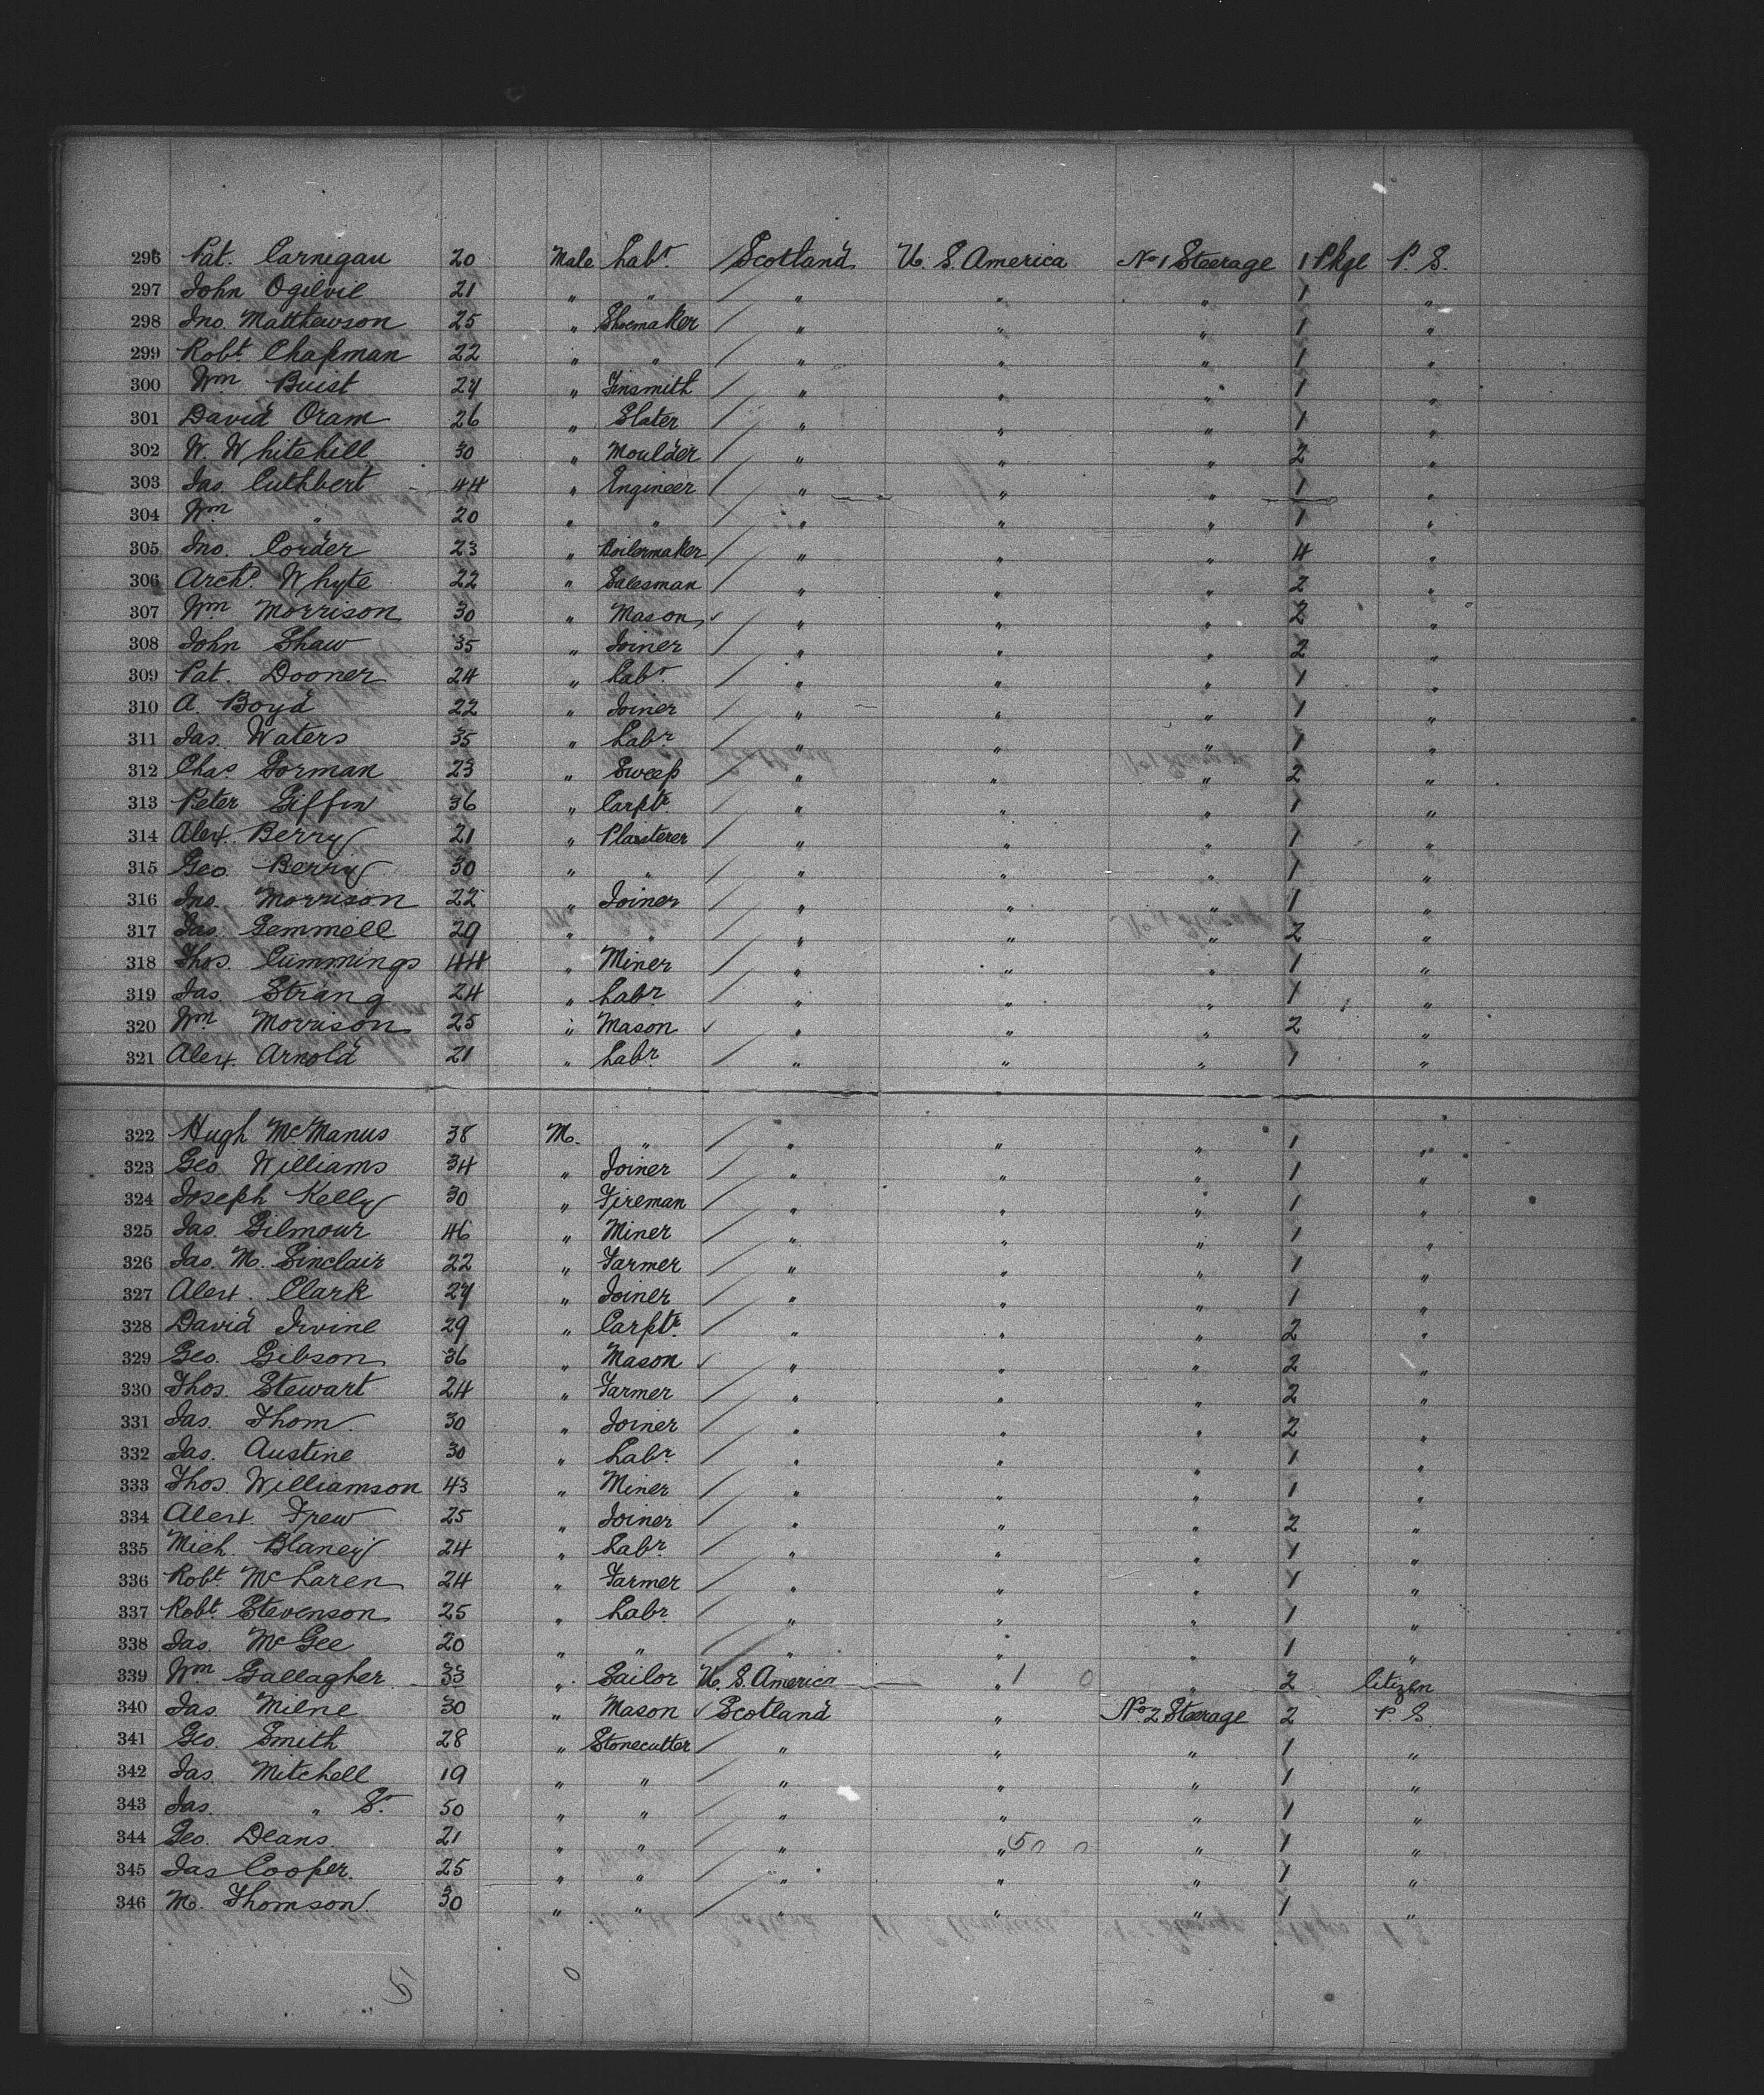 296 Pat. Carnegau 20 Male Labr. Scotland U. S. America No 1 Steerage 1 Pkge P. S.
297 John Ogilvie 21 " " " " " 1 "
298 Jno. Matthewson 25 " Shoemaker " " " 1 "
299 Robt. Chapman 22 " " " " " 1 "
300 Wm Buist 24 " Tinsmith " " " 1 "
301 David Oram 26 " Slater " " " 1 "
302 W. Whitehill 30 " Moulder " " " 2 "
303 Jas. Cuthbert 44 " Engineer " " " 1 "
304 Wm " 20 " " " " " 1 "
305 Jno. Corder 23 " Boilermaker " " " 4 "
306 Archd. Whyte 22 " Salesman " " " 2 "
307 Wm Morrison 30 " Mason " " " 2 "
308 John Shaw 35 " Joiner " " " 2 "
309 Pat. Dooner 24 " Labr. " " " 1 "
310 A. Boyd 22 " Joiner " " " 1 "
311 Jas. Waters 35 " Labr. " " " 1 "
312 Chas Gorman 23 " Sweep " " " 2 "
313 Peter Giffin 36 " Carptr. " " " 1 "
314 Alex. Berry 21 " Plasterer " " " 1 "
315 Geo. Berry 30 " " " " " 1 "
316 Jno. Morrison 22 " Joiner " " " 1 "
317 Jas. Gemmell 29 " " " " " 2 "
318 Thos. Cummings 44 " Miner " " " 1 "
319 Jas. Strang 24 " Labr. " " " 1 "
320 Wm. Morrison 25 " Mason " " " 2 "
321 Alex. Arnold 21 " Labr. " " " 1 "
322 Hugh McManus 38 M. " " " " 1 "
323 Geo. Williams 34 " Joiner " " " 1 "
324 Joseph Kelly 30 " Fireman " " " 1 "
325 Jas. Gilmour 46 " Miner " " " 1 "
326 Jas. M. Sinclair 22 " Farmer " " " 1 "
327 Alex. Clark 24 " Joiner " " " 1 "
328 David Irvine 29 " Carptr. " " " 2 "
329 Geo. Gibson 36 " Mason " " " 2 "
330 Thos. Stewart 24 " Farmer " " " 2 "
331 Jas. Thom 30 " Joiner " " " 2 "
332 Jas. Austine 30 " Labr. " " " 1 "
333 Thos. Williamson 43 " Miner " " " 1 "
334 Alex. Frew 25 " Joiner " " " 2 "
335 Mich. Blaney 24 " Labr. " " " 1 "
336 Robt. McLaren 24 " Farmer " " " 1 "
337 Robt. Stevenson 25 " Labr. " " " 1 "
338 Jas. McGee 20 " " " " " 1 "
339 Wm Gallagher 33 " Sailor U. S. America " 1 0 " 2 Citizen
340 Jas. Milne 30 " Mason Scotland " No. 2 Steerage 2 P. S.
341 Geo. Smith 28 " Stonecutter " " " 1 "
342 Jas. Mitchell 19 " " " " " 1 "
343 Jas. " Sr. 50 " " " " " 1 "
344 Geo. Deans 21 " " " " 50 0 " 1 "
345 Jas Cooper. 25 " " " " " 1 "
346 M. Thomson 30 " " " " " 1 "